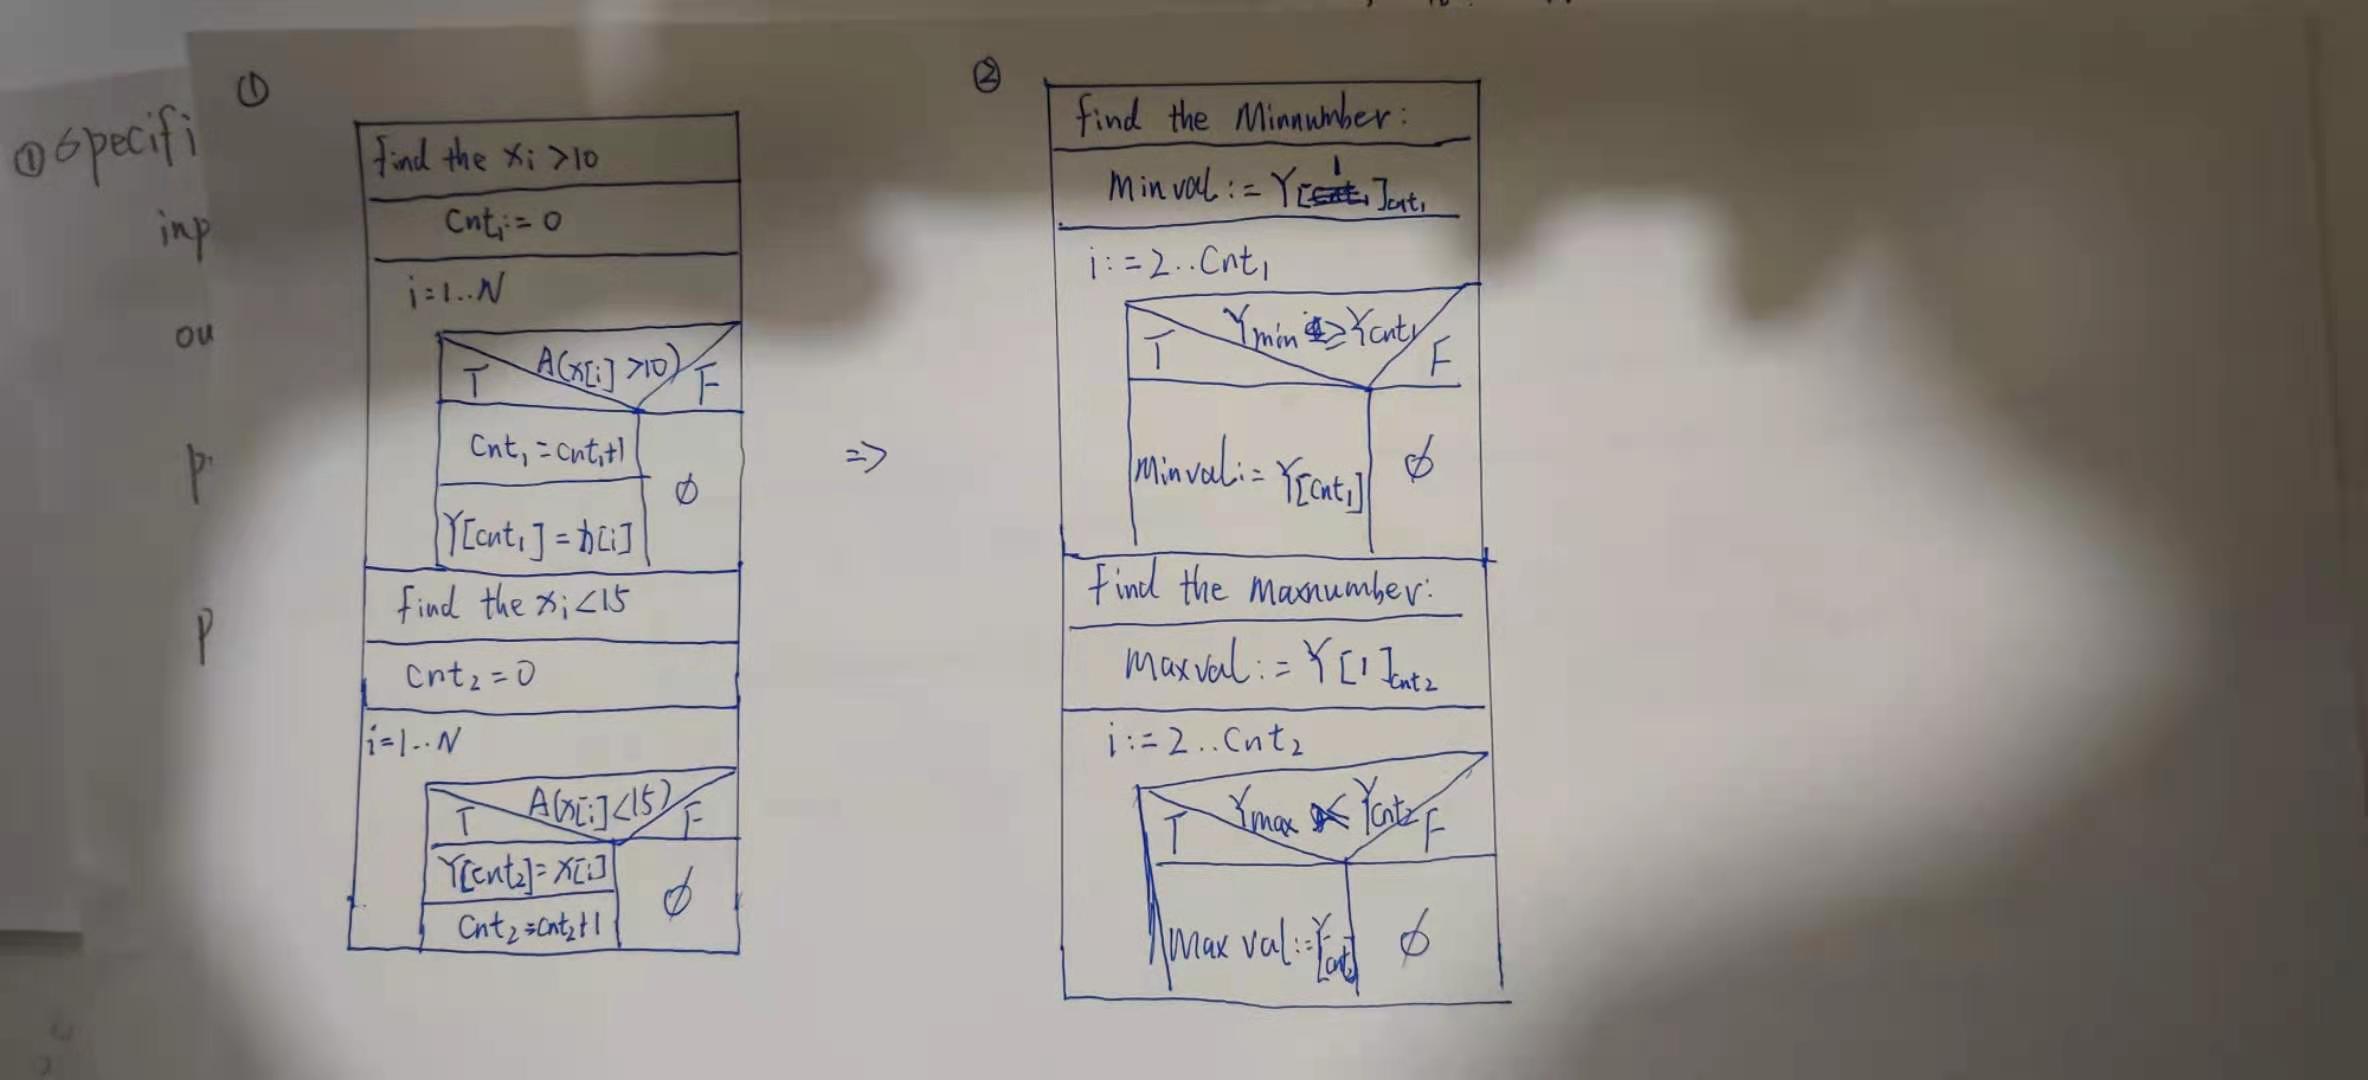 ①
find the xi >10
Cnt1:= 0
i=1..N
A(x[i] >10)
T
F
Cnt1 =cnt1+1
Y[cnt1] = x[i]
∅
find the xi <15
Cnt2 = 0
i=1..N
A(x[i] <15)
T
F
Y[cnt2]= x[i]
Cnt2 =cnt2+1
∅
=>
②
find the Minnumber:
Minval := Y[1]cnt1
i:=2..Cnt1
Ymin ≥ Ycnt1
T
F
Minval:= Y[Cnt1]
∅
find the Maxnumber:
Maxval := Y[1]cnt2
i:=2..Cnt2
Ymax < Ycnt2
T
F
Max val:=Y[cnt2]
∅
① Specifi
inp
ou
p
p